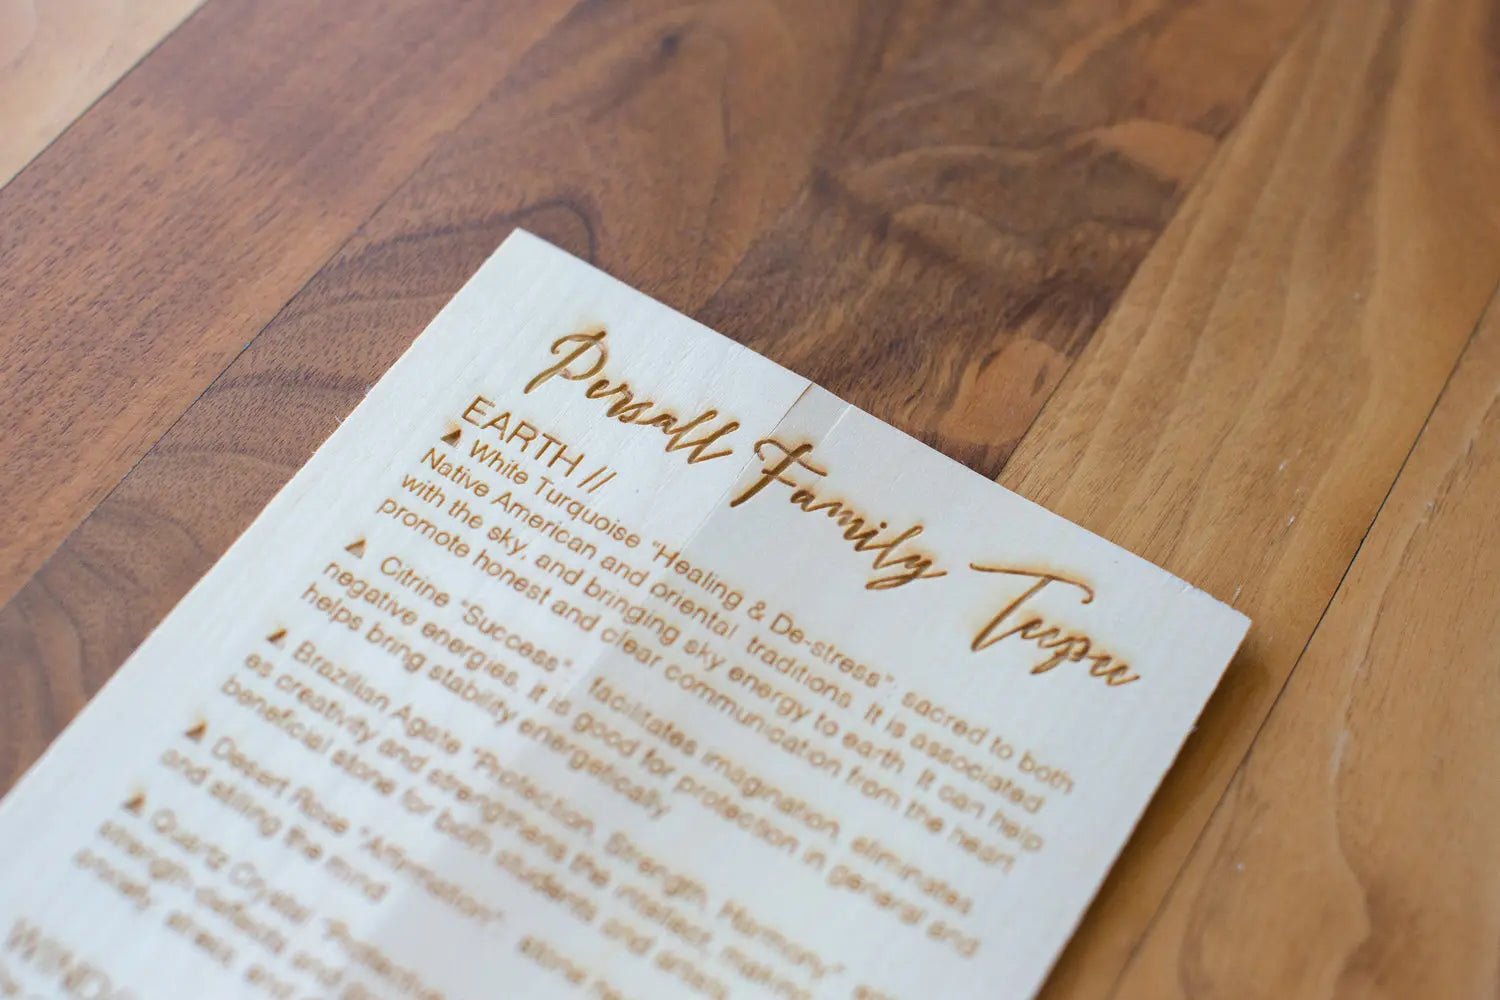 Persall Family Teepee
EARTH //
▲ White Turquoise "Healing & De-stress", sacred to both
Native American and oriental traditions. It is associated
with the sky, and bringing sky energy to earth. It can help
promote honest and clear communication from the heart
▲ Citrine "Success", facilitates imagination, eliminates
negative energies, it is good for protection in general and
helps bring stability energetically
▲ Brazilian Agate "Protection, Strength, Harmony"
es creativity and strengthens the intellect, making
beneficial stone for both students and artists
▲ Desert Rose "Affirmation",
and stilling the mind
▲ Quartz Crystal "Protective
strength
anxiety, stress, and
WIND/